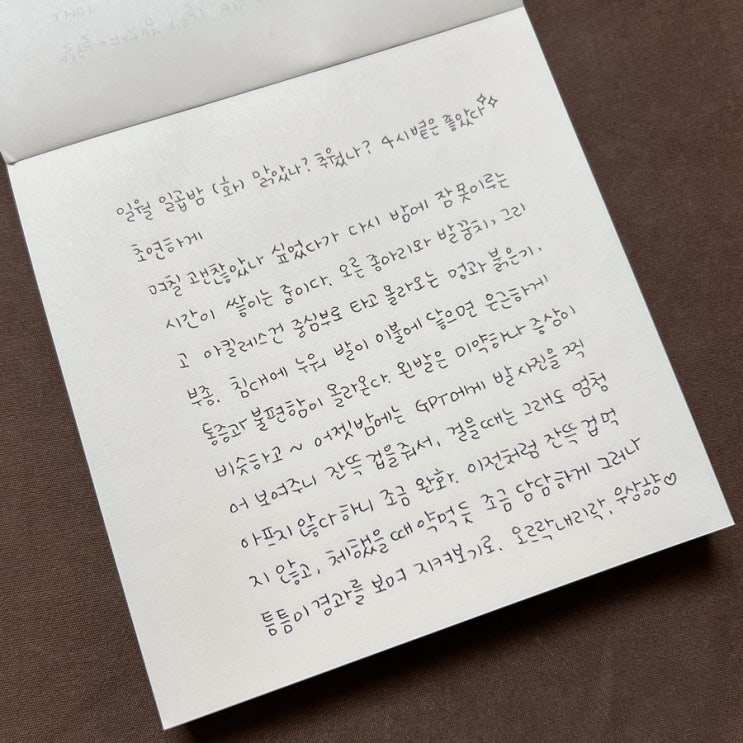 일월 일곱밤 (화) 맑았나? 추웠나? 4시볕은 좋았다
초연하게
며칠 괜찮았나 싶었다가 다시 밤에 잠 못이루는
시간이 쌓이는 중이다. 오른 종아리와 발꿈치, 그리
고 아킬레스건 중심부로 타고 올라오는 멍과 붉은기.
부종. 침대에 누워 발이 이불에 닿으면 은근하게
통증과 불편함이 올라온다. 왼발은 미약하나 증상이
비슷하고 ~ 어젯밤에는 GPT에게 발 사진을 찍
어 보여주니 잔뜩 겁을줘서, 걸을때는 그래도 엄청
아프지 않다하니 조금 완화. 이전처럼 잔뜩 겁먹
지 않고, 체했을때 약먹듯 조금 담담하게 그러나
틈틈이 경과를 보여 지켜보기로. 오르락내리락, 우상향♡